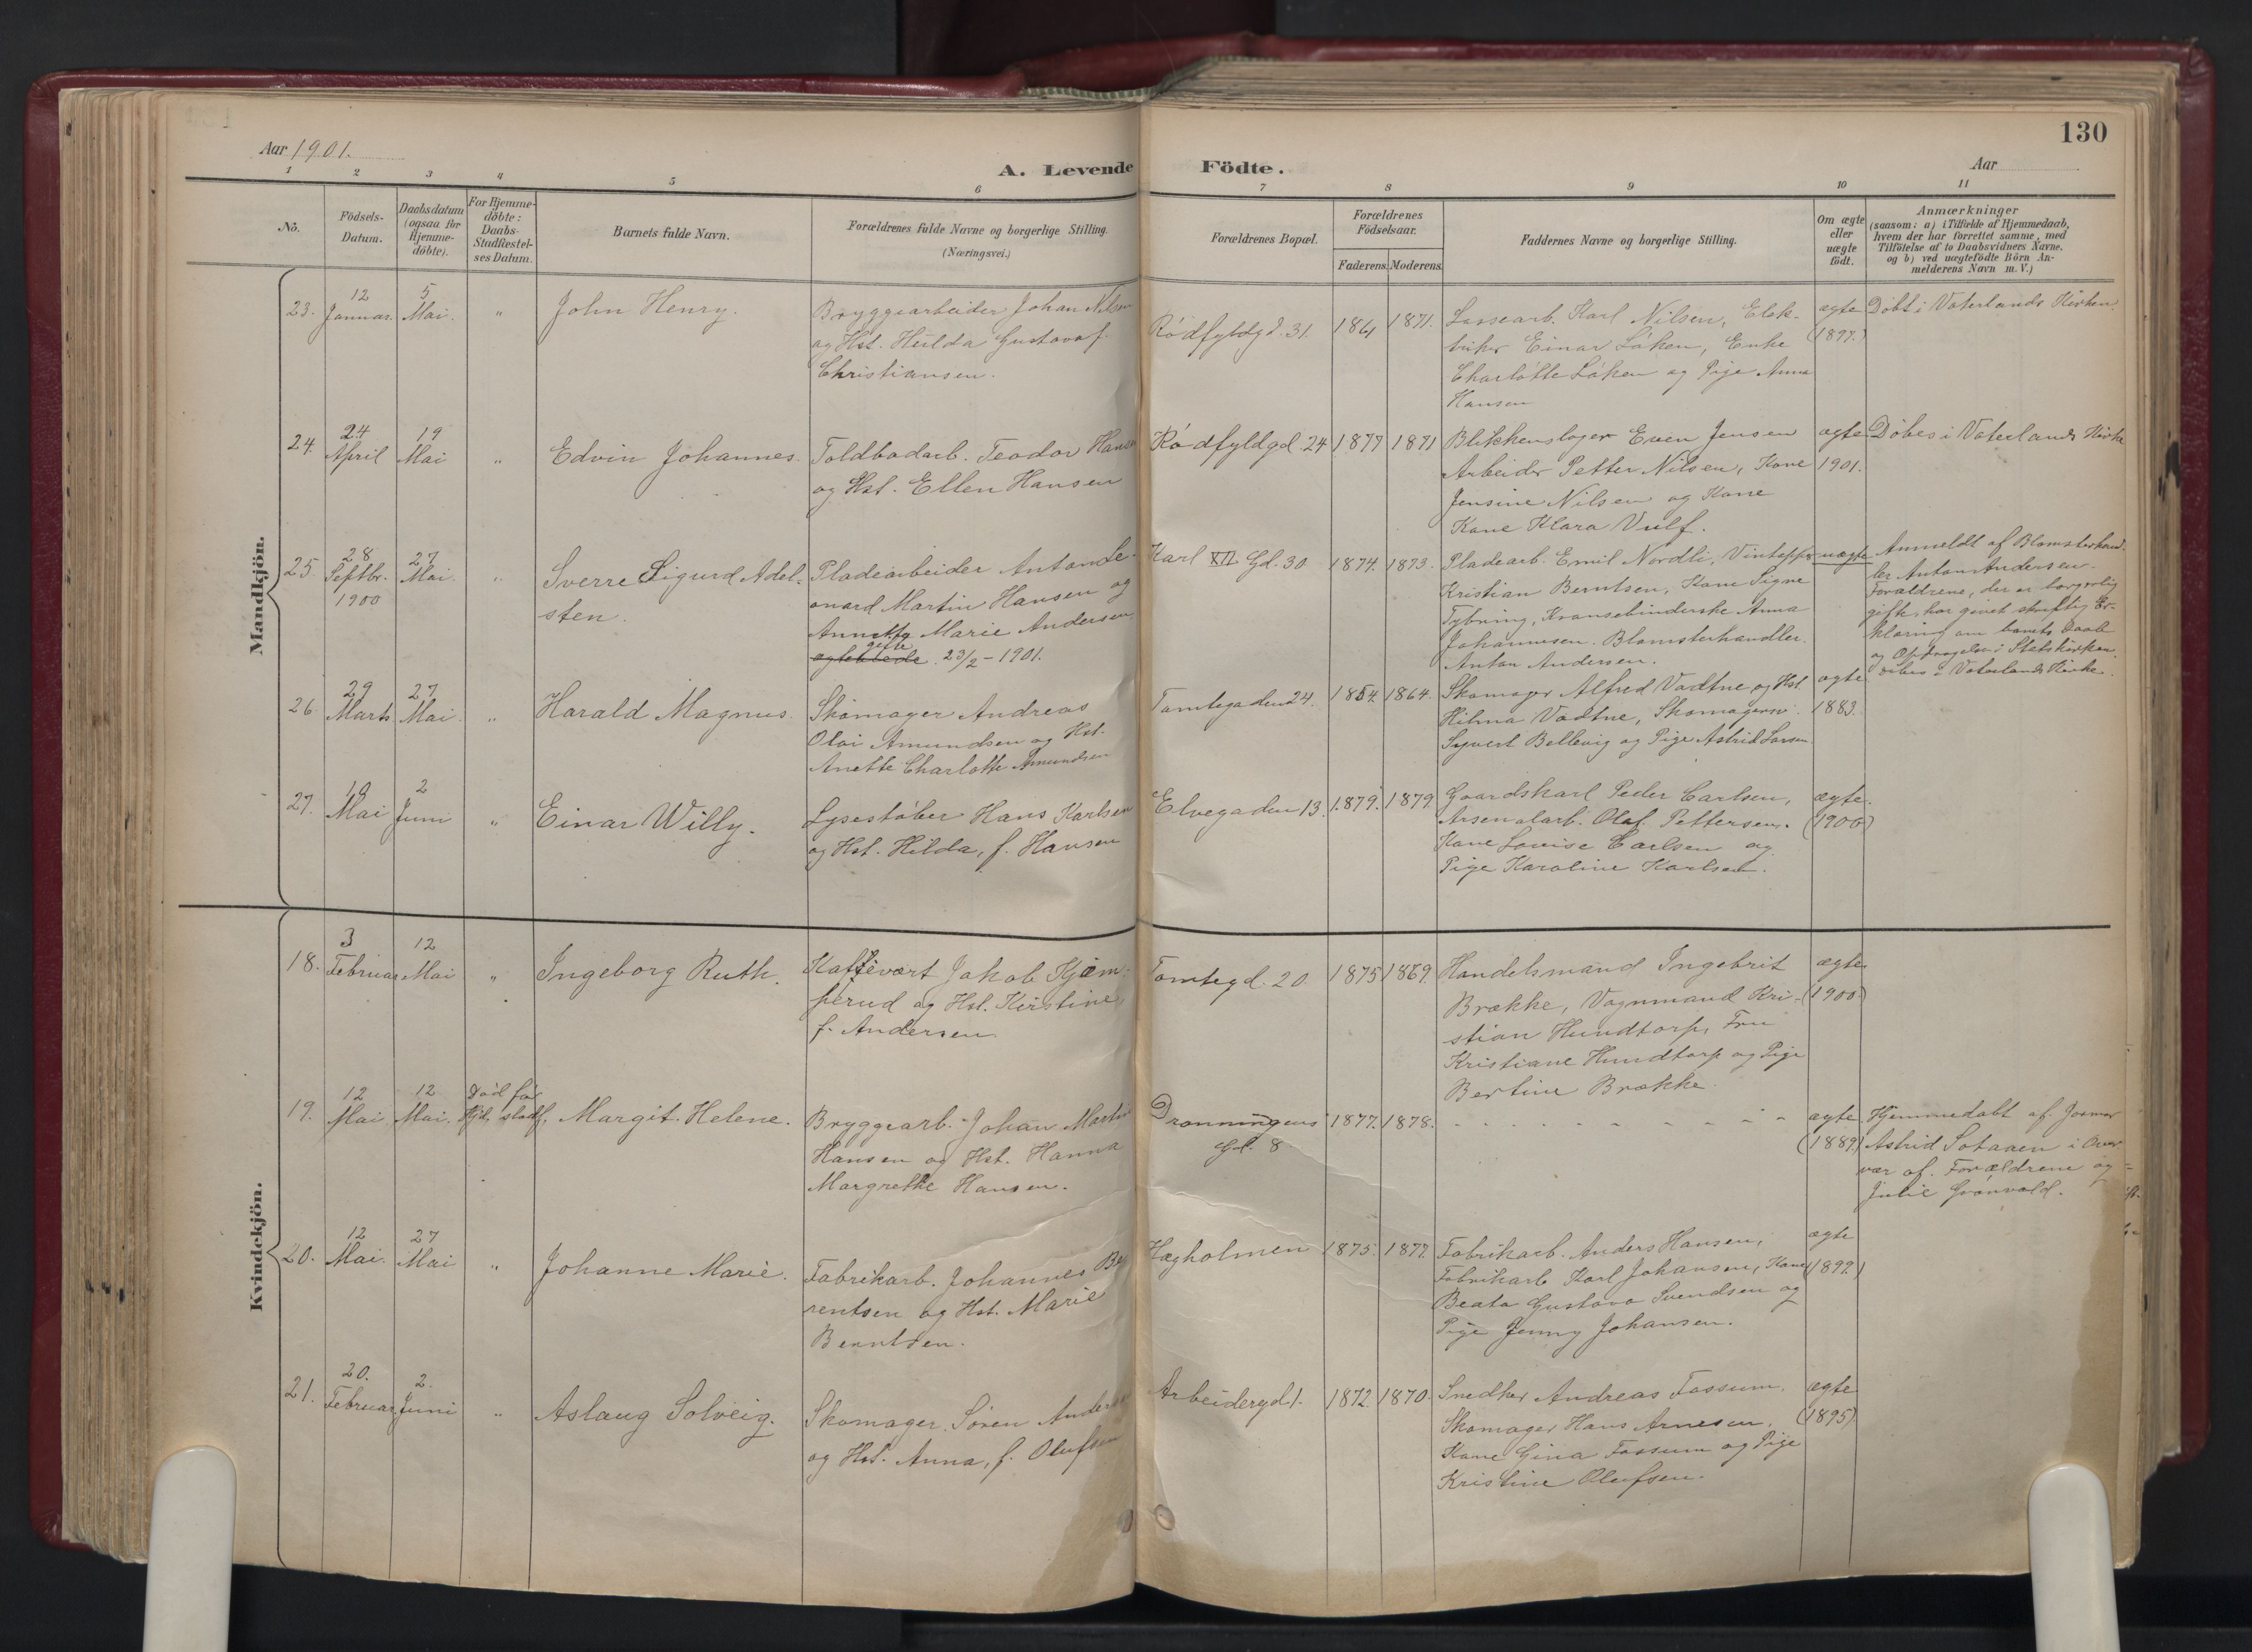 130
Aar 1901.
Aar
A. Levende Födte.
1 2 3 4 5 6 7 8 9 10 11
No. Födsels-Datum. Daabsdatum (ogsaa for Hjemme-döbte). For Hjemme-döbte: Daabs-Stadfæstel-ses Datum. Barnets fulde Navn. Forældrenes fulde Navne og borgerlige Stilling. (Næringsvei.) Forældrenes Bopæl. Forældrenes Födselsaar. Faderens. Moderens. Faddernes Navne og borgerlige Stilling. Om ægte eller uægte födt. Anmærkninger (saasom: a) i Tilfælde af Hjemmedaab, hvem der har forrettet samme, med Tilföielse af to Daabsvidners Navne, og b) ved uægtefödte Börn An-melderens Navn m. V.)
Mandkjön.
23. 12 Januar. 5 Mai. " John Henry.
Bryggearbeider Johan Nilsen
og Hst. Hulda Gustava f.
Christiansen.
Rødfyldgd. 31. 1861 1871.
Lossearb. Karl Nilsen, Elek-
triker Einar Løken, Enke
Charlotte Løken og Pige Anna
Hansen
ægte (1897.) Døbt i Vaterlands Kirken.
24. 24 April 19 Mai " Edvin Johannes.
Toldbodarb. Teodor Hansen
og Hst. Ellen Hansen
Rødfyldgd. 24 1877 1871
Blikkenslager Even Jensen
Arbeider Petter Nilsen, Kone
Jensine Nilsen og Kone
Kone Klara Vulf.
ægte 1901. Døbes i Vaterlands Kirke
25. 28 Septbr. 1900 27 Mai. " Sverre Sigurd Adel-
sten.
Pladearbeider Anton Le-
onard Martin Hansen og
Annette Marie Andersen
gifte
23/2-1901.
Karl XII Gd. 30 1874. 1873.
Pladearb. Emil Nordli, Vintapper
Kristian Berntsen, Kone Signe
Tybring, Kransebinderske Anna
Johannesen. Blomsterhandler
Anton Andersen.
uægte
Anmeldt af Blomsterhand-
ler Anton Andersen.
Forældrene, der er borgerlig
gifte, har givet skriftlig Er-
klæring om barnets Daab
og Opdragelse i Statskirken.
døbes i Vaterlands Kirke.
26. 29 Marts 27 Mai. " Harald Magnus.
Skomager Andreas
Olai Amundsen og Hst.
Anette Charlotte Amundsen
Tomtegaden 24. 1854. 1864.
Skomager Alfred Vadtne og Hst.
Hilma Vadtne, Skomagersv.
Syvert Bellevig og Pige Astrid Larsen.
ægte 1883.
27. 18 Mai 2 Juni " Einar Willy.
Lysestøber Hans Karlsen
og Hst. Hilda, f. Hansen
Elvegaden 13. 1879. 1879
Gaardskarl Peder Carlsen,
Arsenalarb. Olaf Pettersen.
Kone Lovise Carlsen og
Pige Karoline Karlsen.
ægte. (1900)
Kvindekjön.
18. 3 Februar 12 Mai " Ingeborg Ruth.
Kaffevært Jakob Kjem-
perud og Hst. Kirstine
f. Andersen.
Tomtegd. 20. 1875 1869.
Handelsmand Ingebrit
Brække, Vognmand Kri-
stian Hundtorp, Fru
Kristiane Hundtorp og Pige
Bertine Brække.
ægte (1900)
19. 12 Mai 12 Mai. Død før Kjd. stadf. Margit Helene.
Bryggearb. Johan Martin
Hansen og Hst. Hanna
Margrethe Hansen.
Dronningens
Gd. 8
1877. 1878.
ægte (1889.)
Hjemmedøbt af Jormor
Astrid Sotaaen i Over-
vær af Forældrene og
Julie Grønvold.
20. 12 Mai. 27 Mai " Johanne Marie.
Fabrikarb. Johannes Be
rentsen og Hst. Marie
Berntsen.
Hægholmen 1875. 1877.
Fabrikarb. Anders Hansen,
Fabrikarb. Karl Johansen, Kone
Beata Gustava Svendsen og
Pige Jenny Johansen.
ægte (1899.)
21. 20. Februar 2. Juni " Aslaug Solveig.
Skomager Søren Andersen
og Hst. Anna, f. Olufsen
Arbeidergd 1. 1872 1870.
Snedker Andreas Fossum.
Skomager Hans Arnesen.
Kone Gina Fossum og Pige
Kristine Olufsen.
ægte (1895)